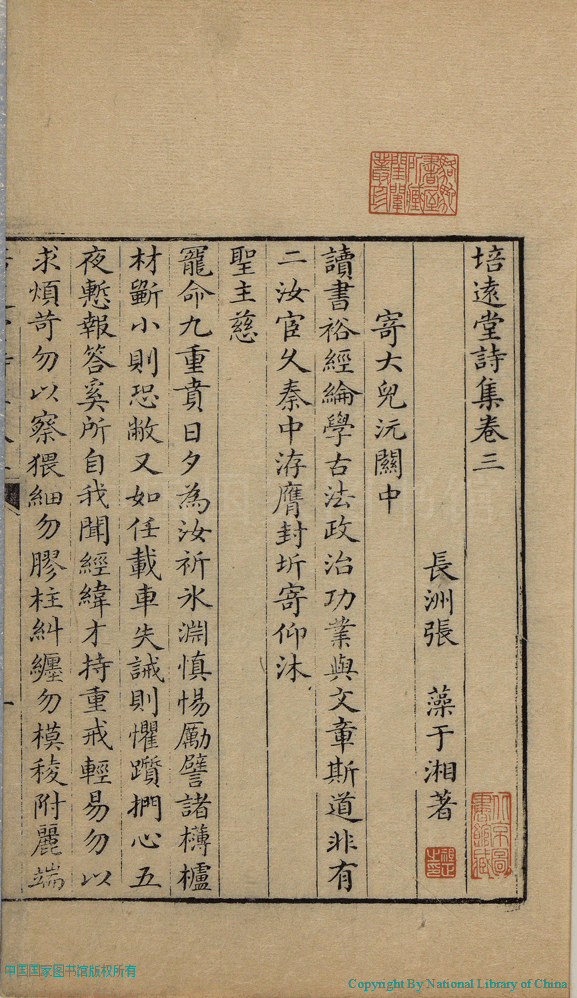 培遠堂詩集卷三
長洲張　藻于湘著
寄大兒沅關中
讀書裕經綸學古法政治功業與文章斯道非有
二汝宦久秦中洊膺封圻寄仰沐
聖主慈
寵命九重賁日夕為汝祈氷淵慎惕勵譬諸欂櫨
材斵小則恐敝又如任載車失誡則懼躓捫心五
夜慙報答奚所自我聞經緯才持重戒輕易勿以
求煩苛勿以察猥細勿膠柱糾纏勿模稜附麗端
中国国家图书馆版权所有
Copyright By National Library of China